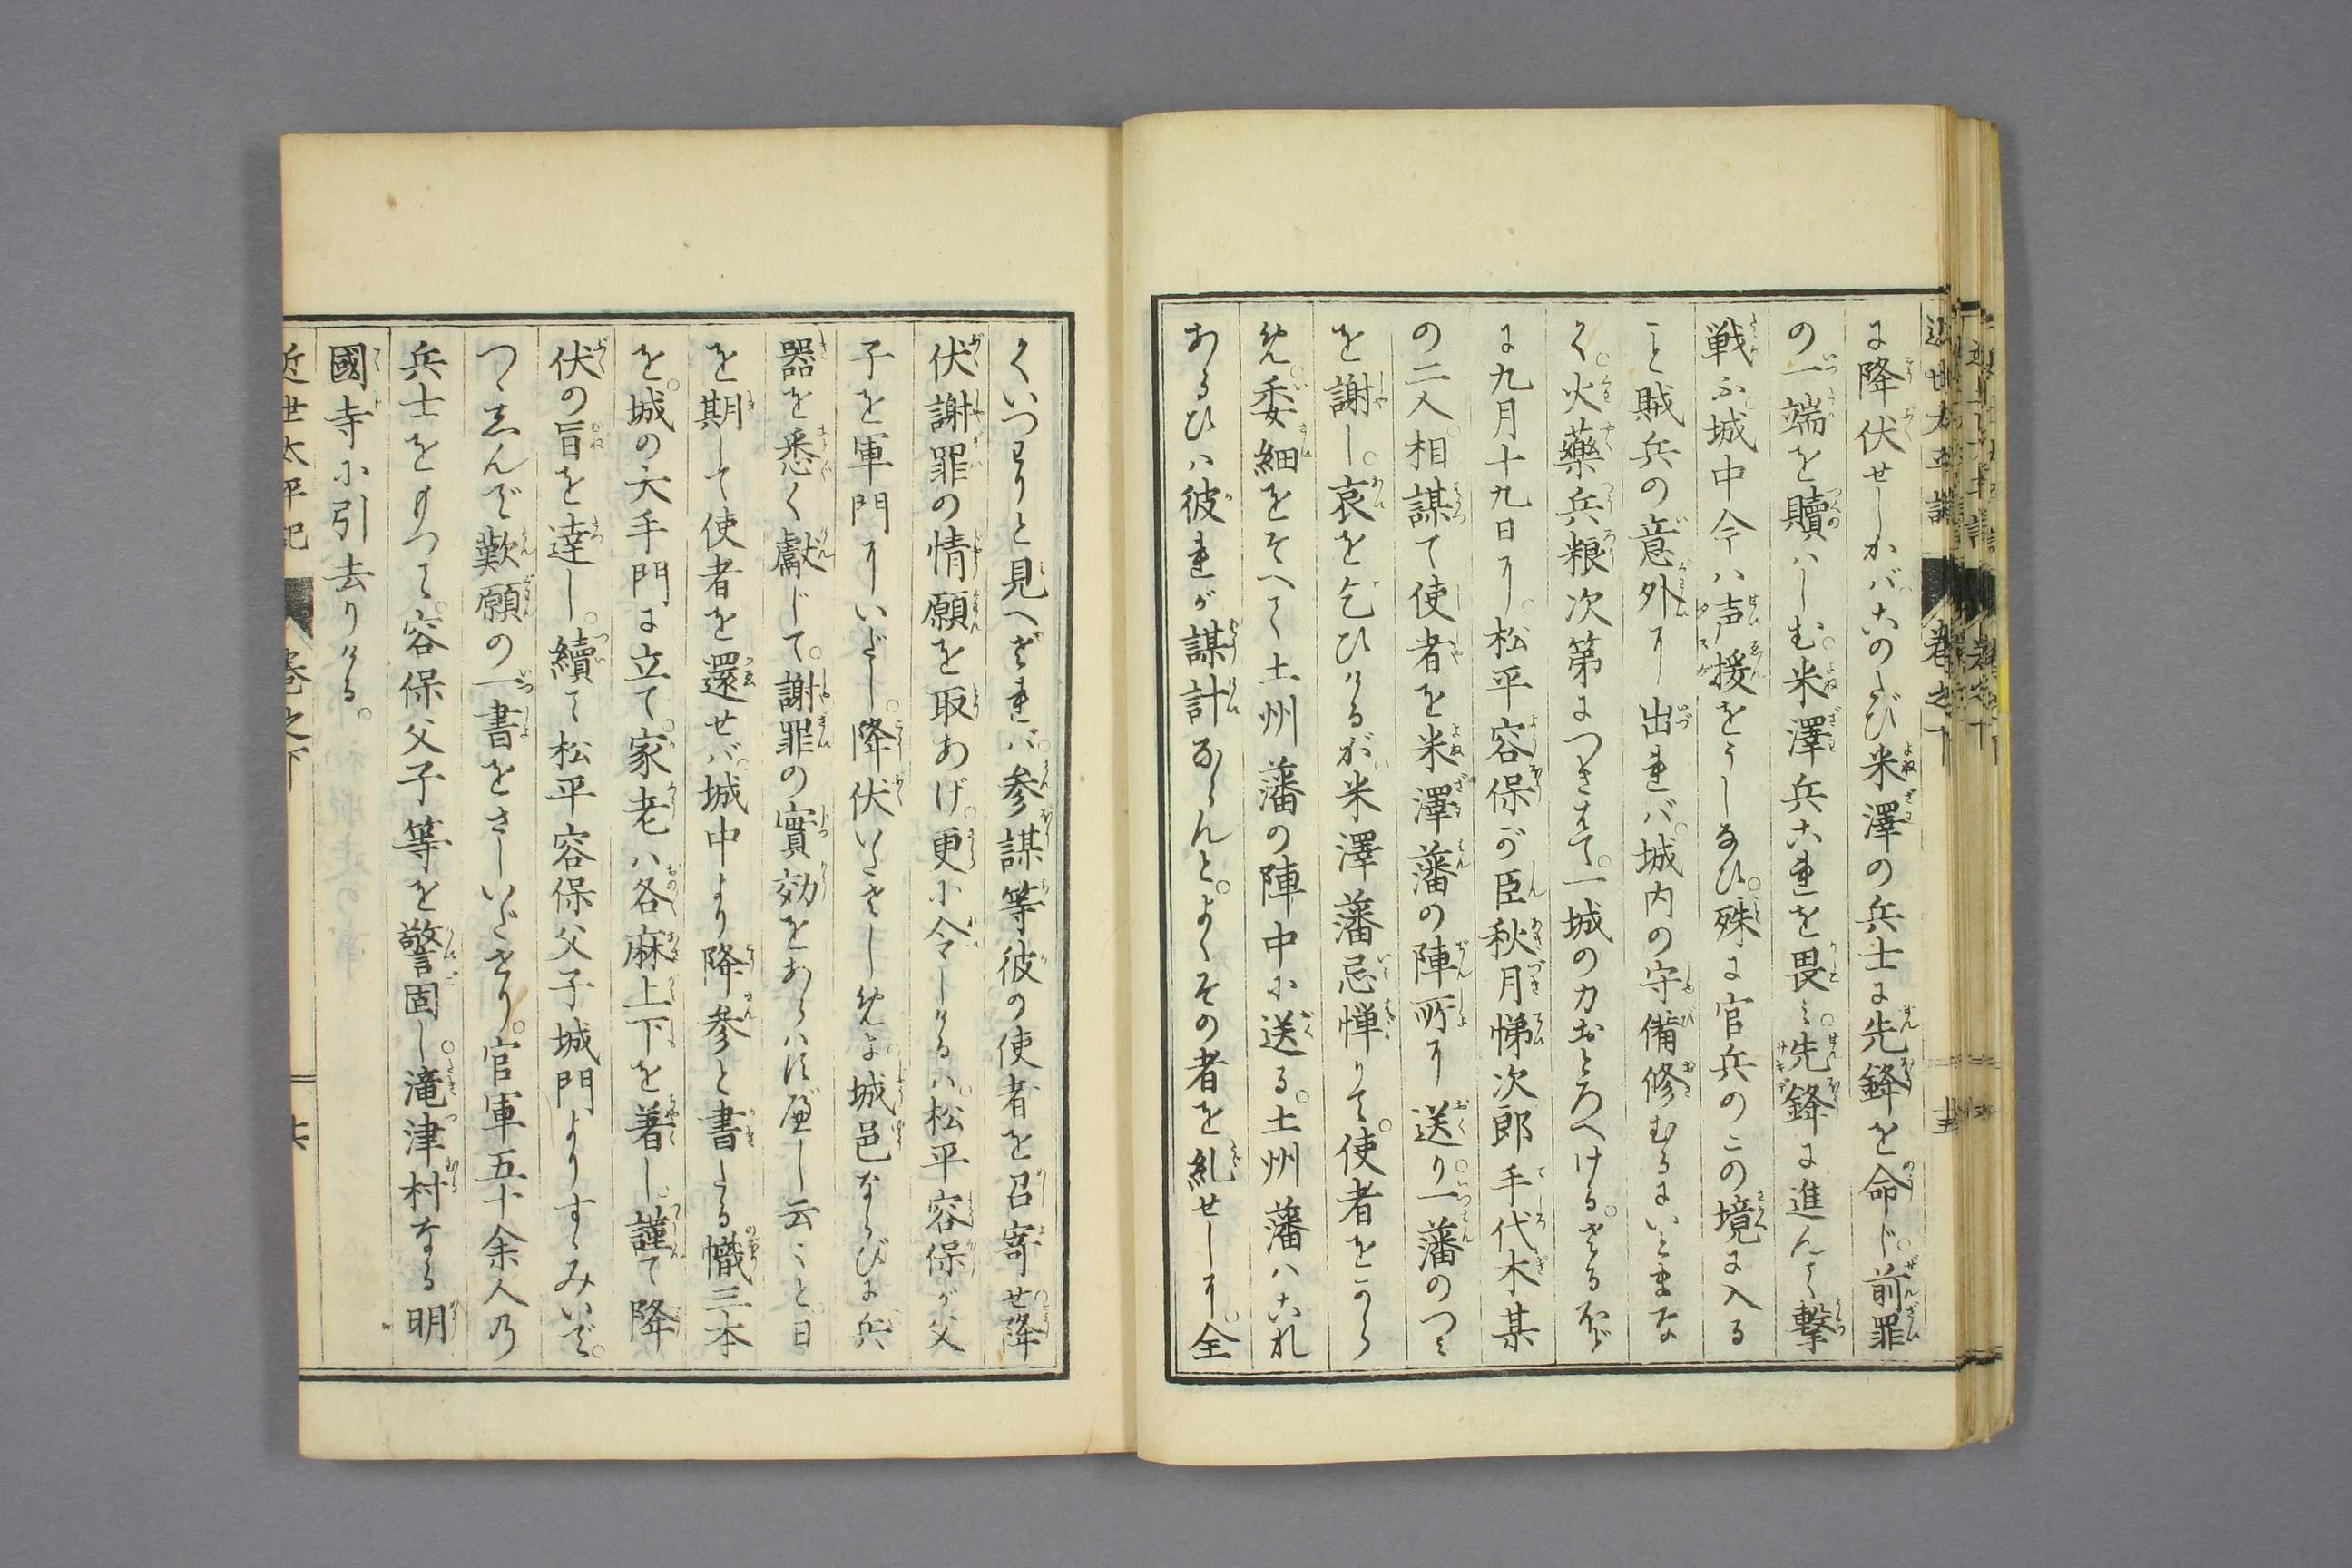 に降伏せしかバ。このたび米澤の兵士に先鋒を命ジ。前罪
の一端を贖ハしむ。米澤兵これを畏ミ。先鋒に進んで撃
戦ふ。城中今ハ声援をうしなひ。殊に官兵のこの境に入る
こと賊兵の意外に出れバ。城内の守備修むるにいとまな
く。火藥兵粮次第につきはて。一城の力おとろへける。さるほど
に九月十九日に。松平容保が臣秋月悌次郎手代木某
の二人。相謀て使者を米澤藩の陣所に送り。一藩のつミ
を謝し。哀を乞ひけるが。米澤藩忌憚りて。使者をこら
せ。委細をそへて土州藩の陣中に送る。土州藩ハこれ
あるひハ彼れが謀計ならんと。よくその者を糺せしに。全
くいつわりと見へざれバ。参謀等彼の使者を召寄せ。降
伏謝罪の情願を取あげ。更に令しけるハ。松平容保が父
子を軍門にいだし。降伏いたさしめ。城邑ならびに兵
器を悉く獻じて。謝罪の實効をあらハすべし云々と。日
を期して使者を還せバ。城中より降参と書たる幟三本
を。城の大手門に立て。家老ハ各麻上下を著し。謹て降
伏の旨を達し。續て松平容保父子城門よりすゝみいで。
つゝしんで歎願の一書をさしいだせり。官軍五十余人乃
兵士をもつて。容保父子等を警固し。滝津村なる明
國寺に引去りける。
近世太平記 巻之下 十六